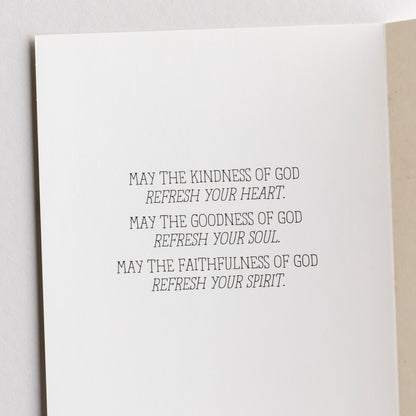 MAY THE KINDNESS OF GOD
REFRESH YOUR HEART.
MAY THE GOODNESS OF GOD
REFRESH YOUR SOUL.
MAY THE FAITHFULNESS OF GOD
REFRESH YOUR SPIRIT.